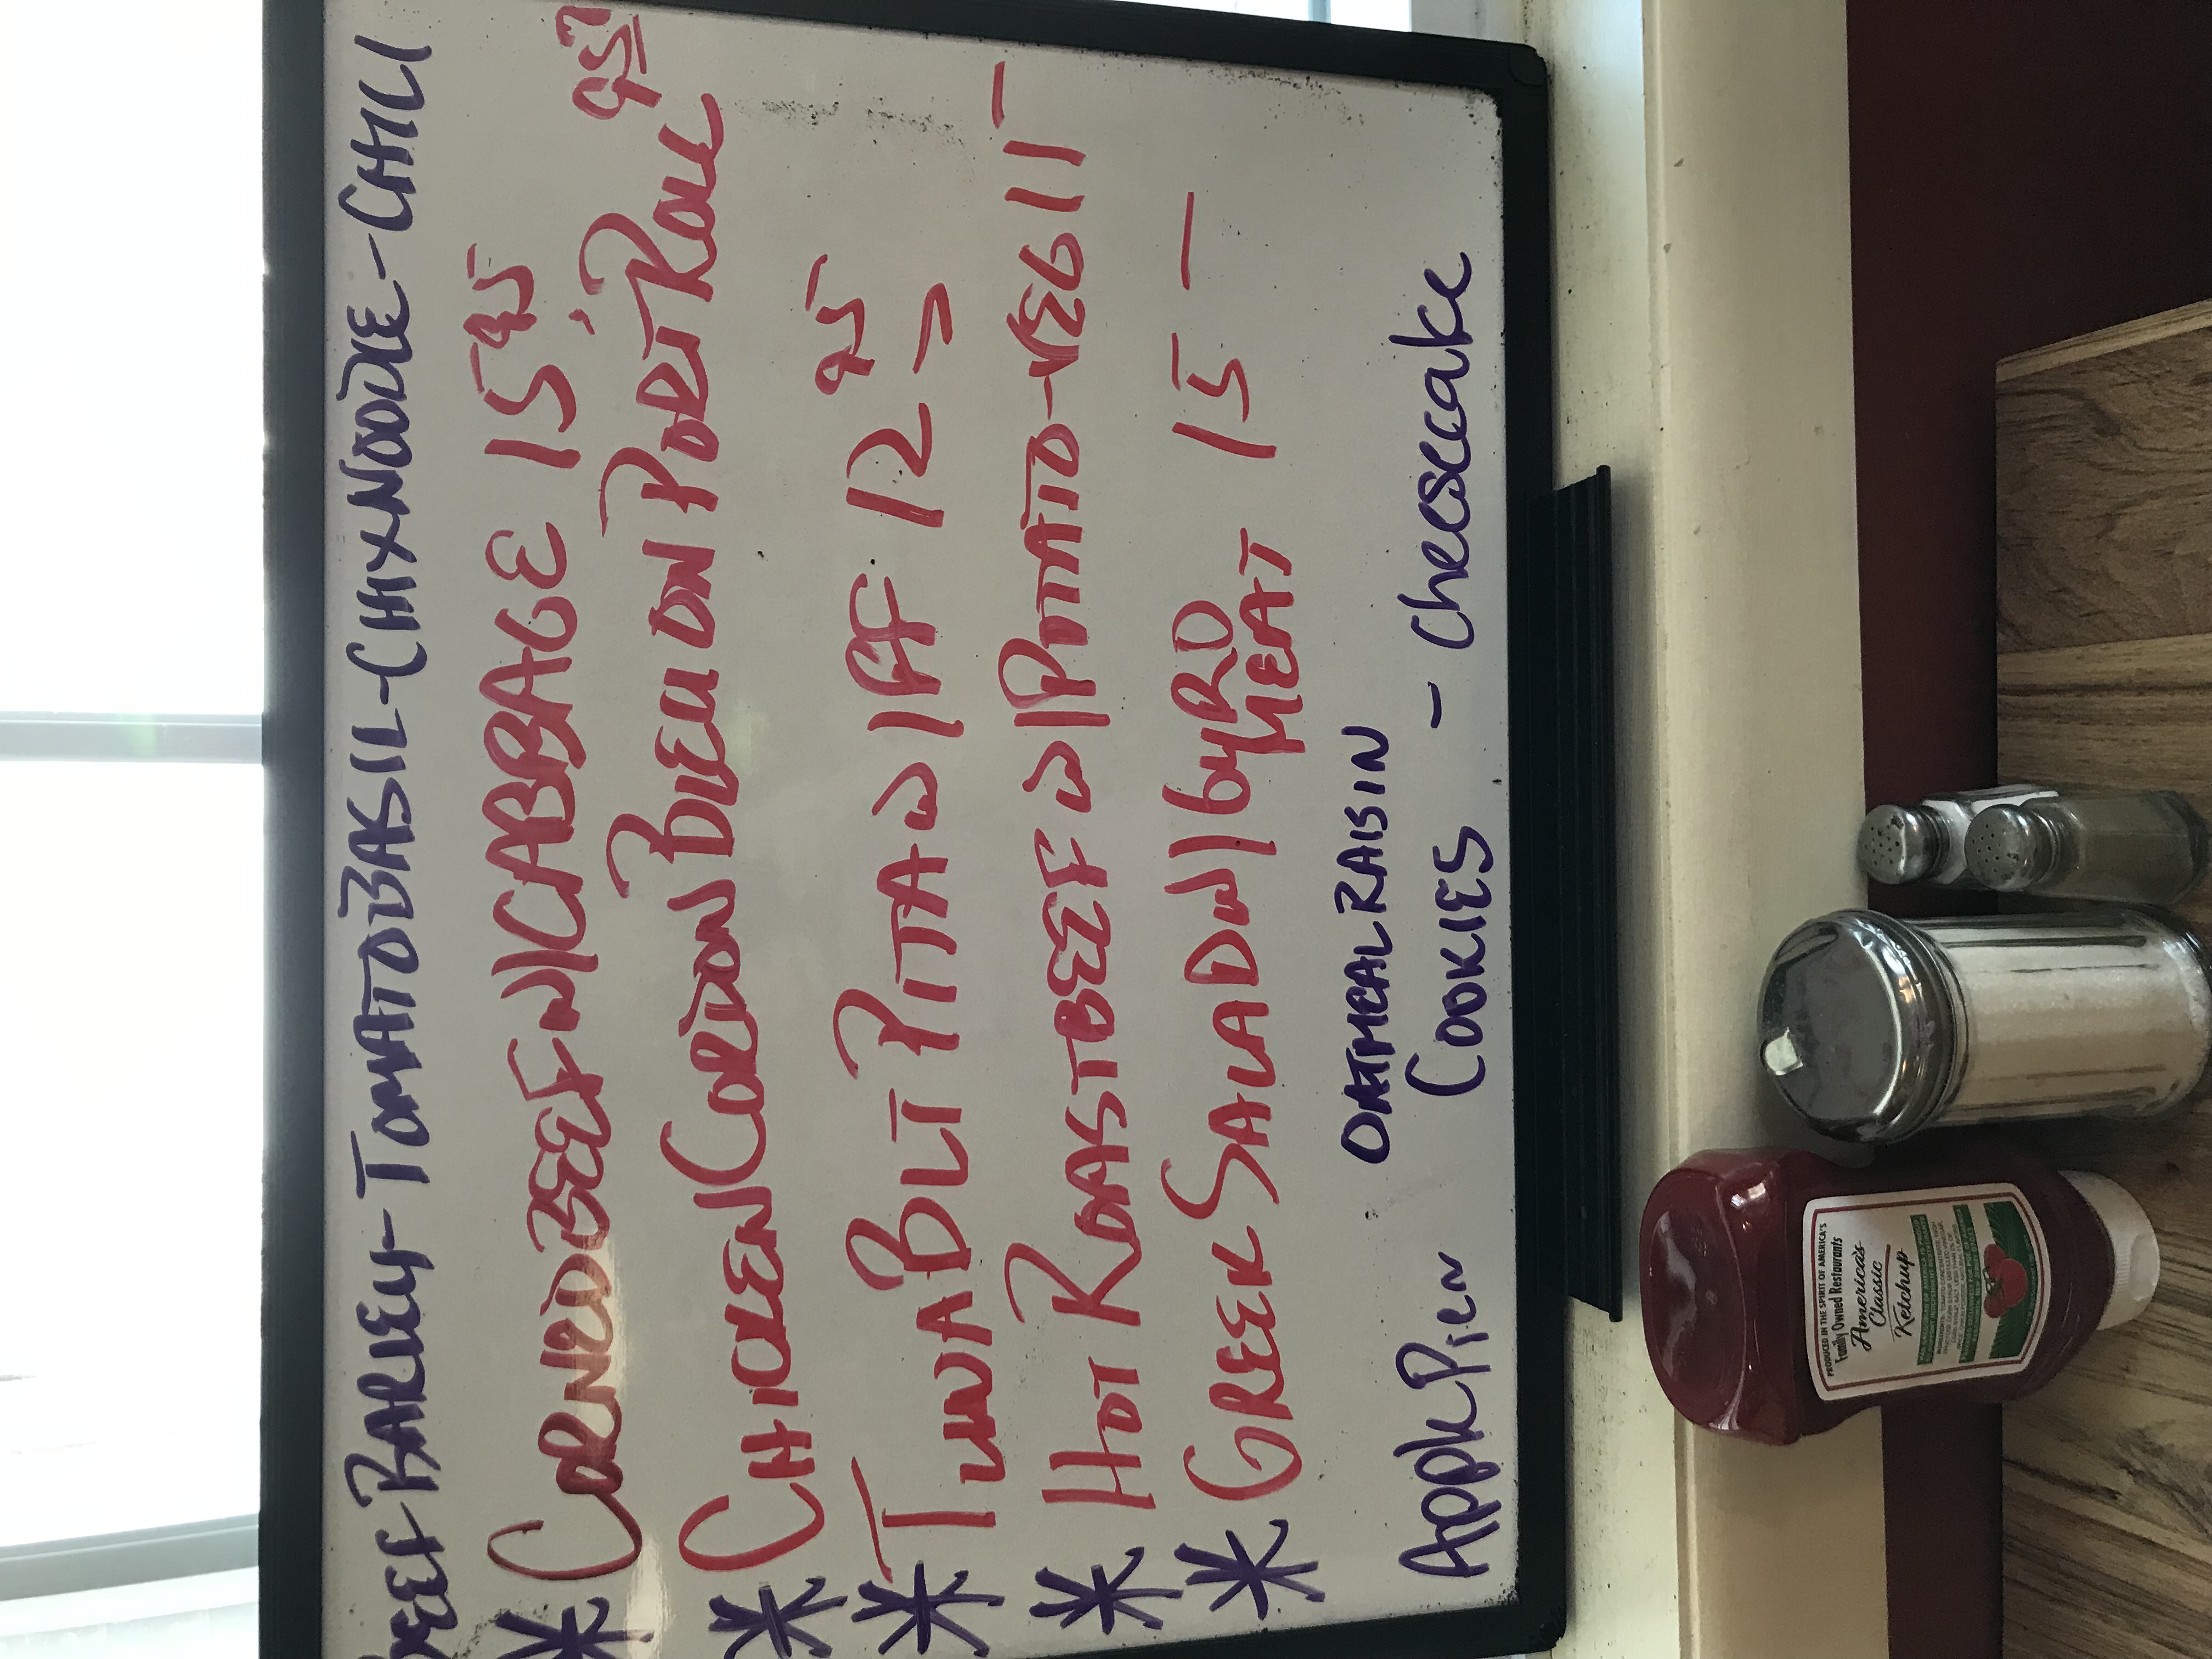 BEEF BARLEY - TOMATO BASIL - CHIX NOODLE - CHILI
* CORNED BEEF W/ CABBAGE 15 95
* CHICKEN CORDON BLEU ON PORT. ROLL 9 57
* TUNA BLT PITA W/ FF 12 95
* HOT ROAST BEEF W/ POTATO - VEG 11 —
* GREEK SALAD W/ GYRO MEAT 15 —
OATMEAL RAISIN
APPLE PIE COOKIES - Cheesecake
PRODUCED IN THE SPIRIT OF AMERICA'S
Family Owned Restaurants
America's
Classic
Ketchup